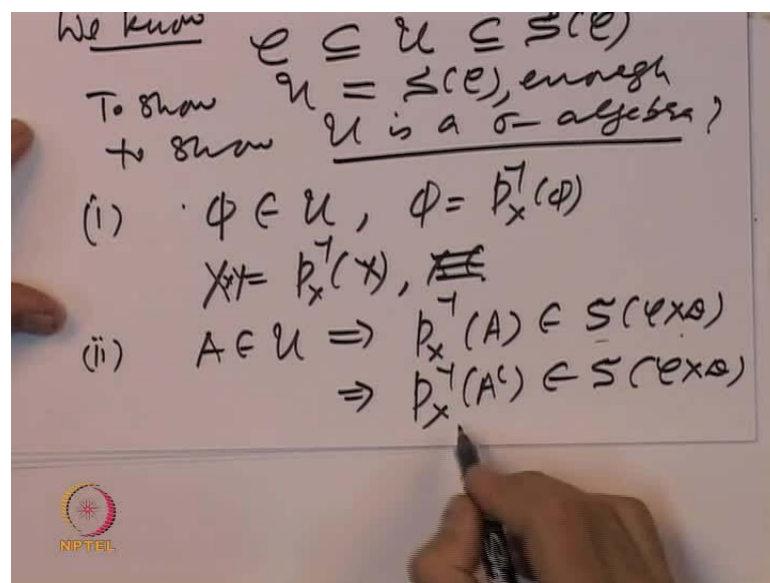 We know 𝒞 ⊆ 𝒰 ⊆ S(𝒞)
To show 𝒰 = S(𝒞), enough
to show 𝒰 is a σ-algebra?
(i) φ ∈ 𝒰, φ = p_X^{-1}(φ)
X×Y = p_X^{-1}(X),
(ii) A ∈ 𝒰 ⇒ p_X^{-1}(A) ∈ S(𝒞×𝒟)
⇒ p_X^{-1}(A^c) ∈ S(𝒞×𝒟)
NPTEL